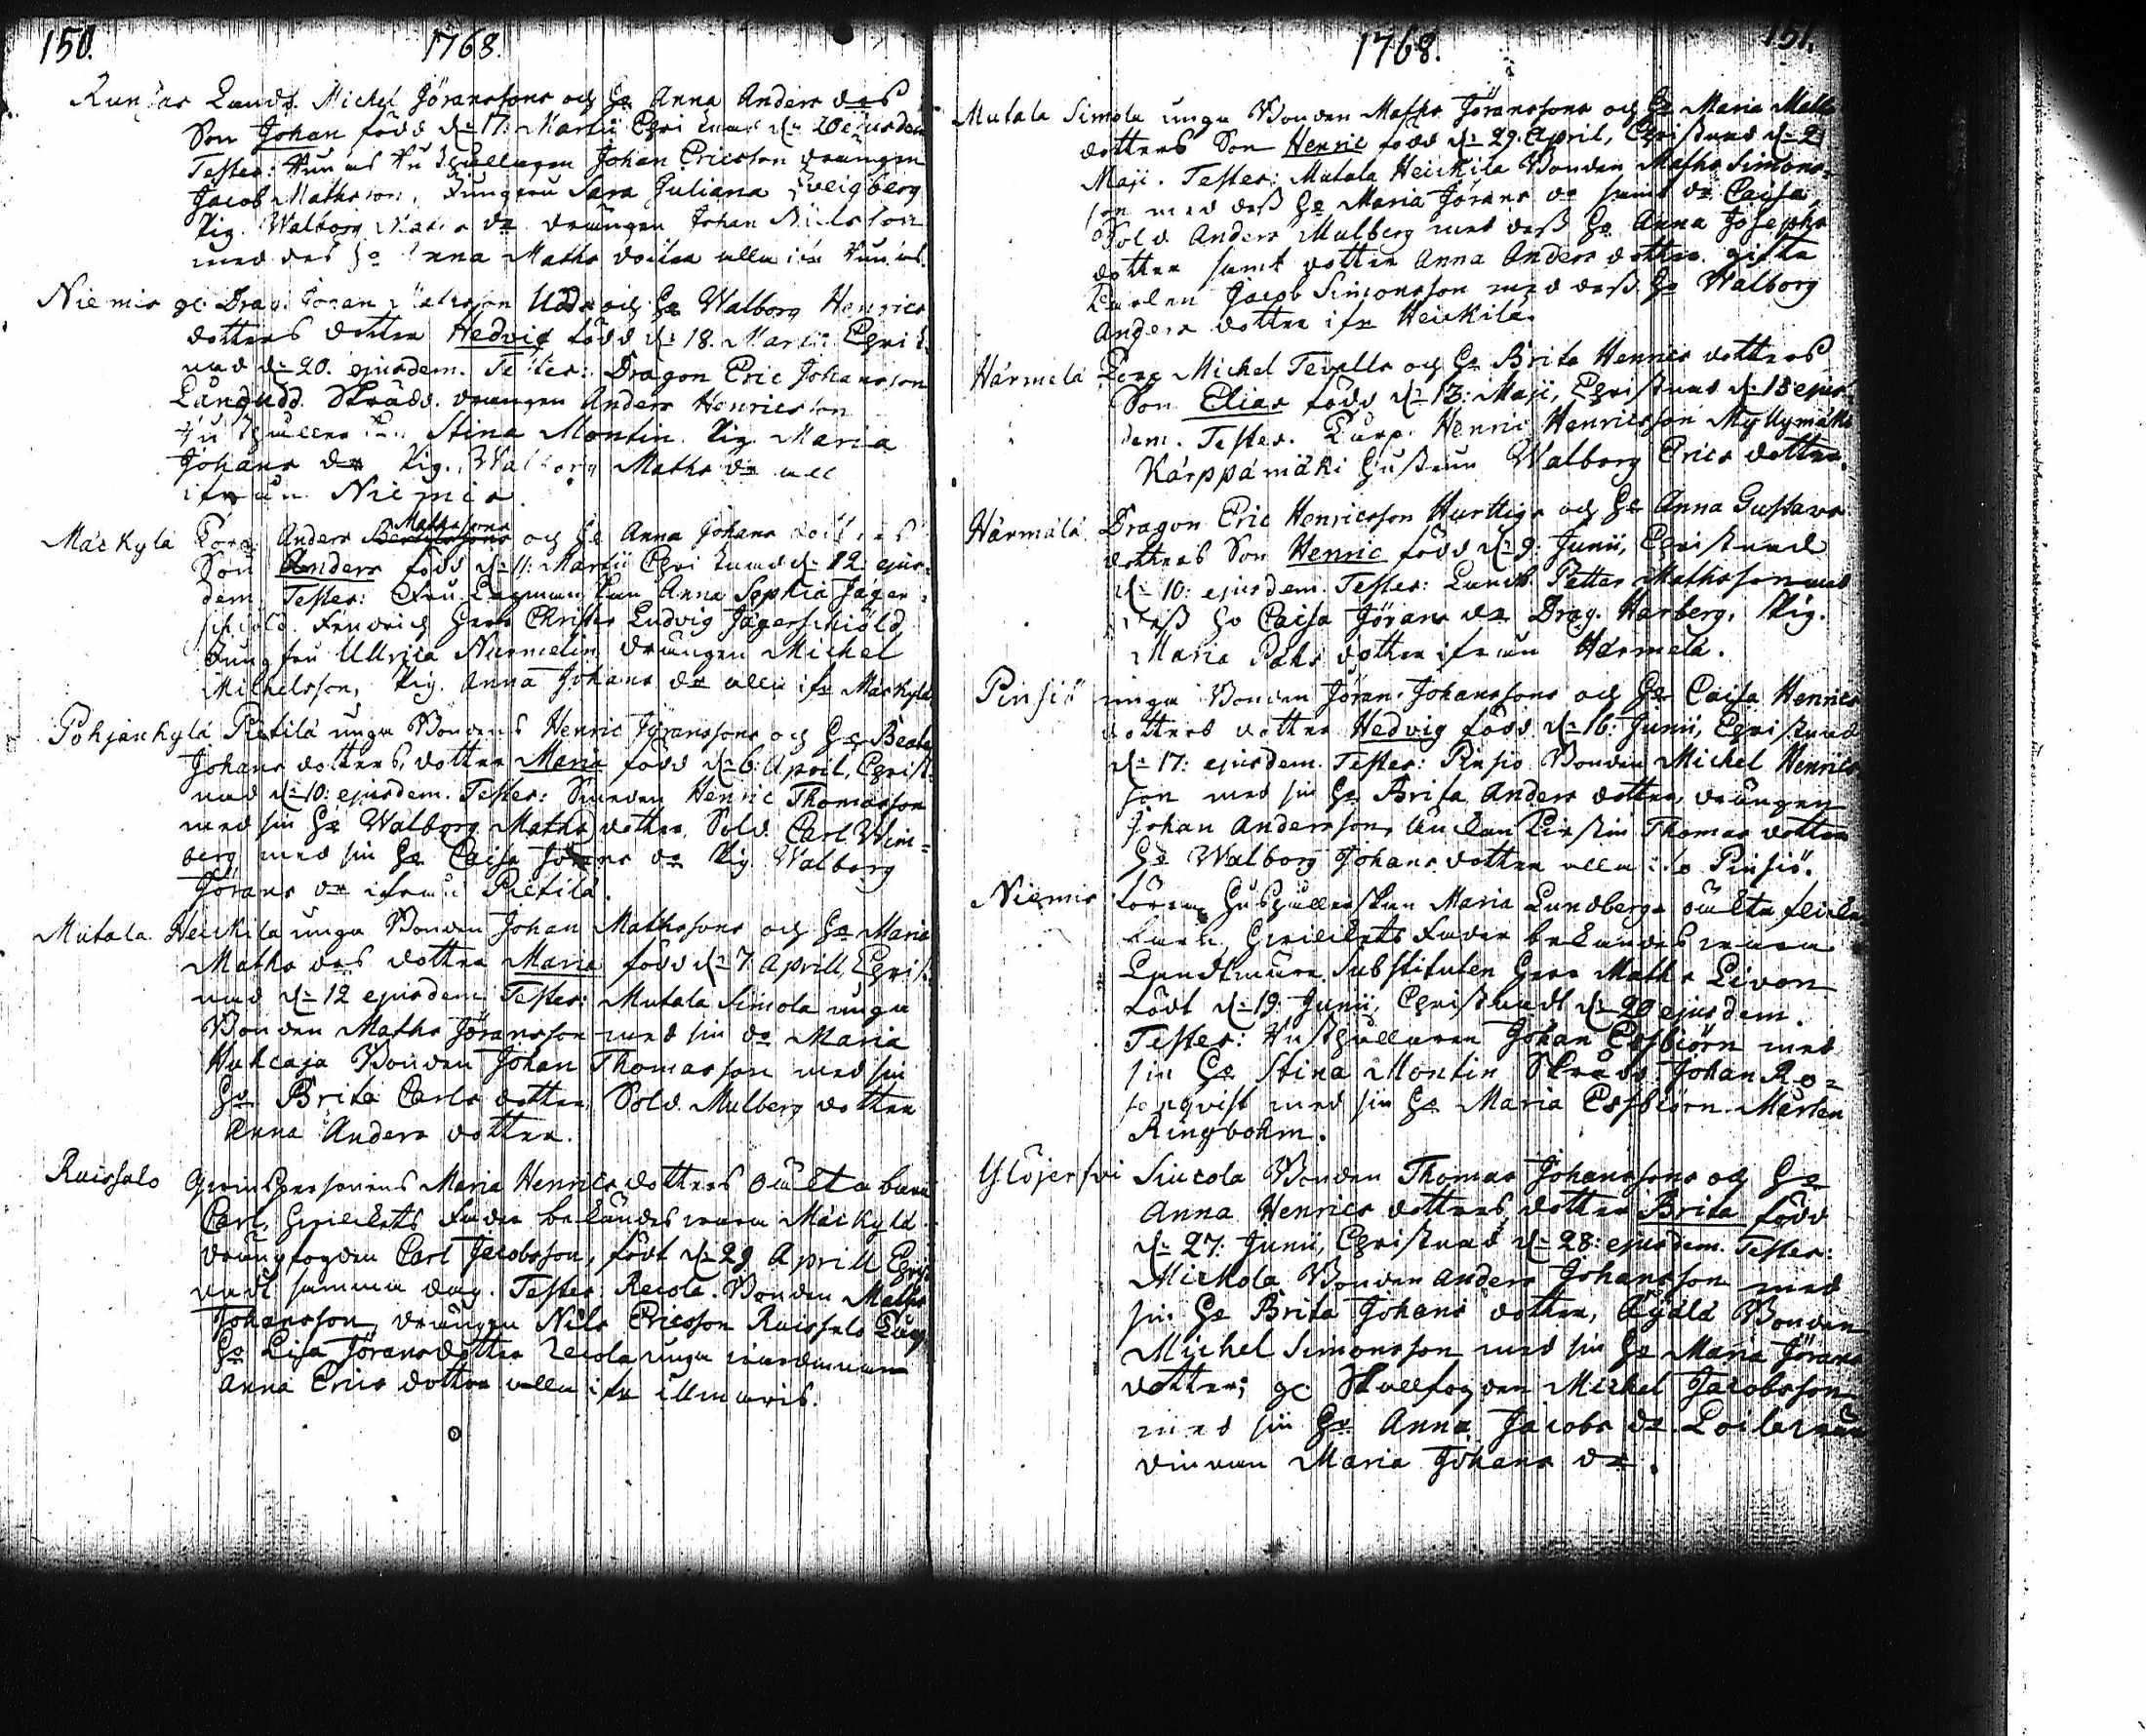 150.
1768.
Michel Jöranssons och Hu Anna Anders des
Son Johan född d: 17: Martii Chri d: 20 ejusdem
Testes: Johan Ericsson drängen
Jacob Mathsson, Jungfru Sara Juliana
Pig. Walborg dr drängen Johan
med des Hu Anna Maths dotter alla ifr
Niemis Drag. Johan Udd och Hu Walborg Henrics
dotters dotter Hedvig född d: 18. Martii Chri
nad d: 20. ejusdem. Testes: Dragon Eric Johansson
Långudd. Skrädd. drängen Anders Henricsson
Stina Montin. Pig. Maria
Johans dr Pig. Walborg Maths dr all
ifrån Niemis.
Mackylä Anders Mathssons och Hu Anna Johans dotters
Son Anders född d: 11: Martii Chri d: 12: ejus
dem. Testes: Fru Anna Sophia Jäger
schiöld. Fendrich Herr Christer Ludvig Jägerschiöld
Jungfru Ullrica Nurmelin, drängen Michel
Michelsson, Pig. Anna Johans dr alla ifr Mackylä
Pohjankylä Pietilä unga Bondens Henric Jöranssons och Hu Beata
Johans dotters, dotter Maria född d: 6: April, Christ
nad d: 10: ejusdem. Testes: Smeden Henric Thomasson
med sin Hu Walborg Maths dotter, Sold. Carl Wim=
berg med sin Hu Caisa Jörans dr Pig. Walborg
Jörans dr ifrån Pietilä.
Mutala Heickila unga Bonden Johan Mathssons och Hu Maria
Maths des dotter Maria född d: 7 Aprill, Chris
nad d: 12 ejusdem Testes: Mutala Simola unga
Bonden Maths Jöransson med sin Hu Maria
Huhcaja Bonden Johan Thomasson med sin
Hu Brita Carls dotter, Sold. Mulberg dotter
Anna Anders dotter.
Ruissalo Qvinspersonens Maria Henrics dotters oäkta barn
Carl, hvilckets Fader bekändes vara Mackylä
drängfogden Carl Jacobsson, födt d: 29 Aprill Chris
nadt samma dag. Testes Reiola Bonden Maths
Johansson, drängen Nils Ericsson Ruissalo
Hu Lisa Jörans dotter Reiola unga värdinnan
Anna Erics dotter alla ifr illmaris.
1768.
151.
Mutala Simola unga Bonden Maths Jöranssons och Hu Maria Maths
dotters Son Henric född d: 29. April, Christnad d: 2
Maji. Testes: Mutala Heickila Bonden Maths Simons=
son med dess Hu Maria Jörans dr samt dr Caisa,
Sold Anders Mulberg med dess Hu Anna Josephs
dotter samt dotter Anna Anders dotter, gifta
Karlen Jacob Simonsson med dess Hu Walborg
Anders dotter ifr Heickilä.
Härmelä Michel Tevells och Hu Brita Henrics dotters
Son Elias född d: 13: Maji, Christnad d: 15 ejus
dem. Testes. Henric Henricsson Myllymäki
Kärppämäki Hustrun Walborg Erics dotter.
Härmälä Dragon Eric Henricsson Hurtigs och Hu Anna Gustavs
dotters Son Henric född d: 9: Junii, Christnad
d: 10: ejusdem. Testes: Landb. Petter Mathsson med
dess Hu Caisa Jörans dr Drag. Harberg, Pig.
Maria Påhls dotter ifrån Härmelä.
Pinsiö unga Bonden Jöran Johanssons och Hu Caisa Henrics
dotters dotter Hedvig född d: 16: Junii, Christnad
d: 17: ejusdem. Testes: Pinsiö Bonden Michel Henrics
son med sin Hu Brita Anders dotter, drängen
Johan Andersson, Änckan Kirstin Thomas dotter
Hu Walborg Johans dotter alla ifr Pinsiö.
Niemis Hushållerskan Maria Lundbergs oäkta flicke
barn, hvilckets Fader bekändes vara
Landtmätare Substituten Herr Maths Livon
födt d: 19: Junii, Christnadt d: 20 ejusdem.
Testes: Hushållaren Johan Essbiörn med
sin Hu Stina Montin Skrädd. Johan Ro=
senqvist med sin Hu Maria Essbiörn Mårten
Ringbohm.
Ylöjerfvi Siucola Bonden Thomas Johanssons och Hu
Anna Henrics dotters, dotter Brita född
d: 27: Junii, Christnad d: 28: ejusdem. Testes:
Mickola Bonden Anders Johansson med
sin Hu Brita Johans dotter, Äijälä Bonden
Michel Simonsson med sin Hu Maria Jörans
dotter; Skallfogden Michel Jacobsson
med sin Hu Anna Jacobs dr
dinnan Maria Johans dr.